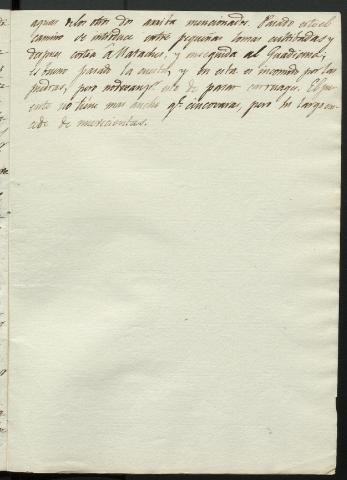 aguas de los otros dos arriba mencionados. Pasado este el
camino se introduce entre pequeñas lomas cultivadas y
despues corta à Matachel, y enseguida al Guadiana;
es bueno pasada la cuesta, y en esta es incomodo por las
piedras, pero no dexan de pasar carruages. El pu
ente no tiene mas ancho qe. cinco varas, pero su largo es
de de novecientas.